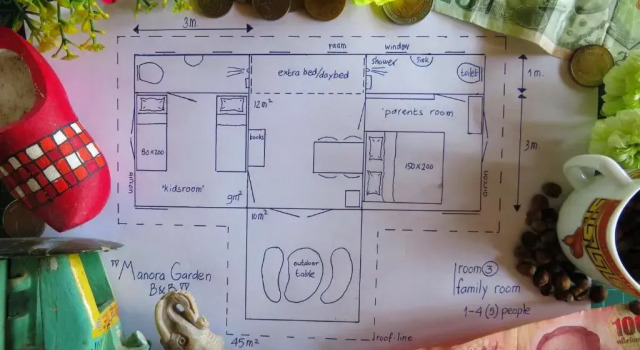 3m
room
window
shower
sink
toilet
extra bed/daybed
1 m.
12m²
'parents' room
80x200
books
150x200
3m
aircon
aircon
'kidsroom'
9m²
10m²
"Manora Garden
B&B"
outdoor
table
room 3
family room
1-4 (5) people
45m²
roof-line
100